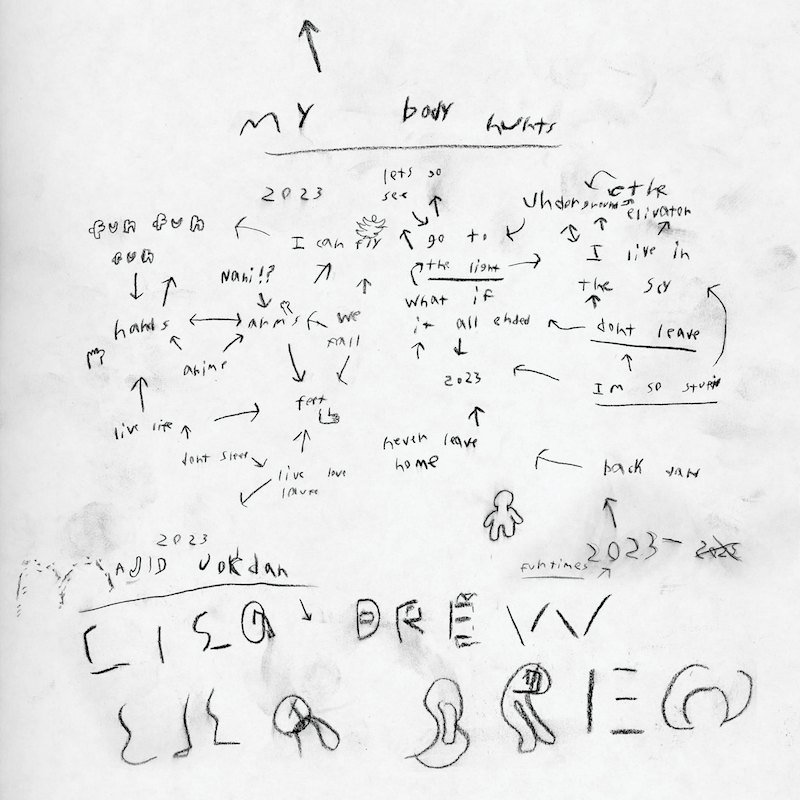 MY body huhts
lets go
see
2023
the
undergrounds
elivator
fun fun
fun
I can fly
go to
the light
I live in
the sky
Nani!?
what if
it all ended
hands
arms
we
fall
dont leave
anime
2023
Im so stupid
feet
live life
dont sleep
never leave
home
live love
leave
back yard
2023
2023-2025
funtimes
MAJID JORDAN
LISA DREW